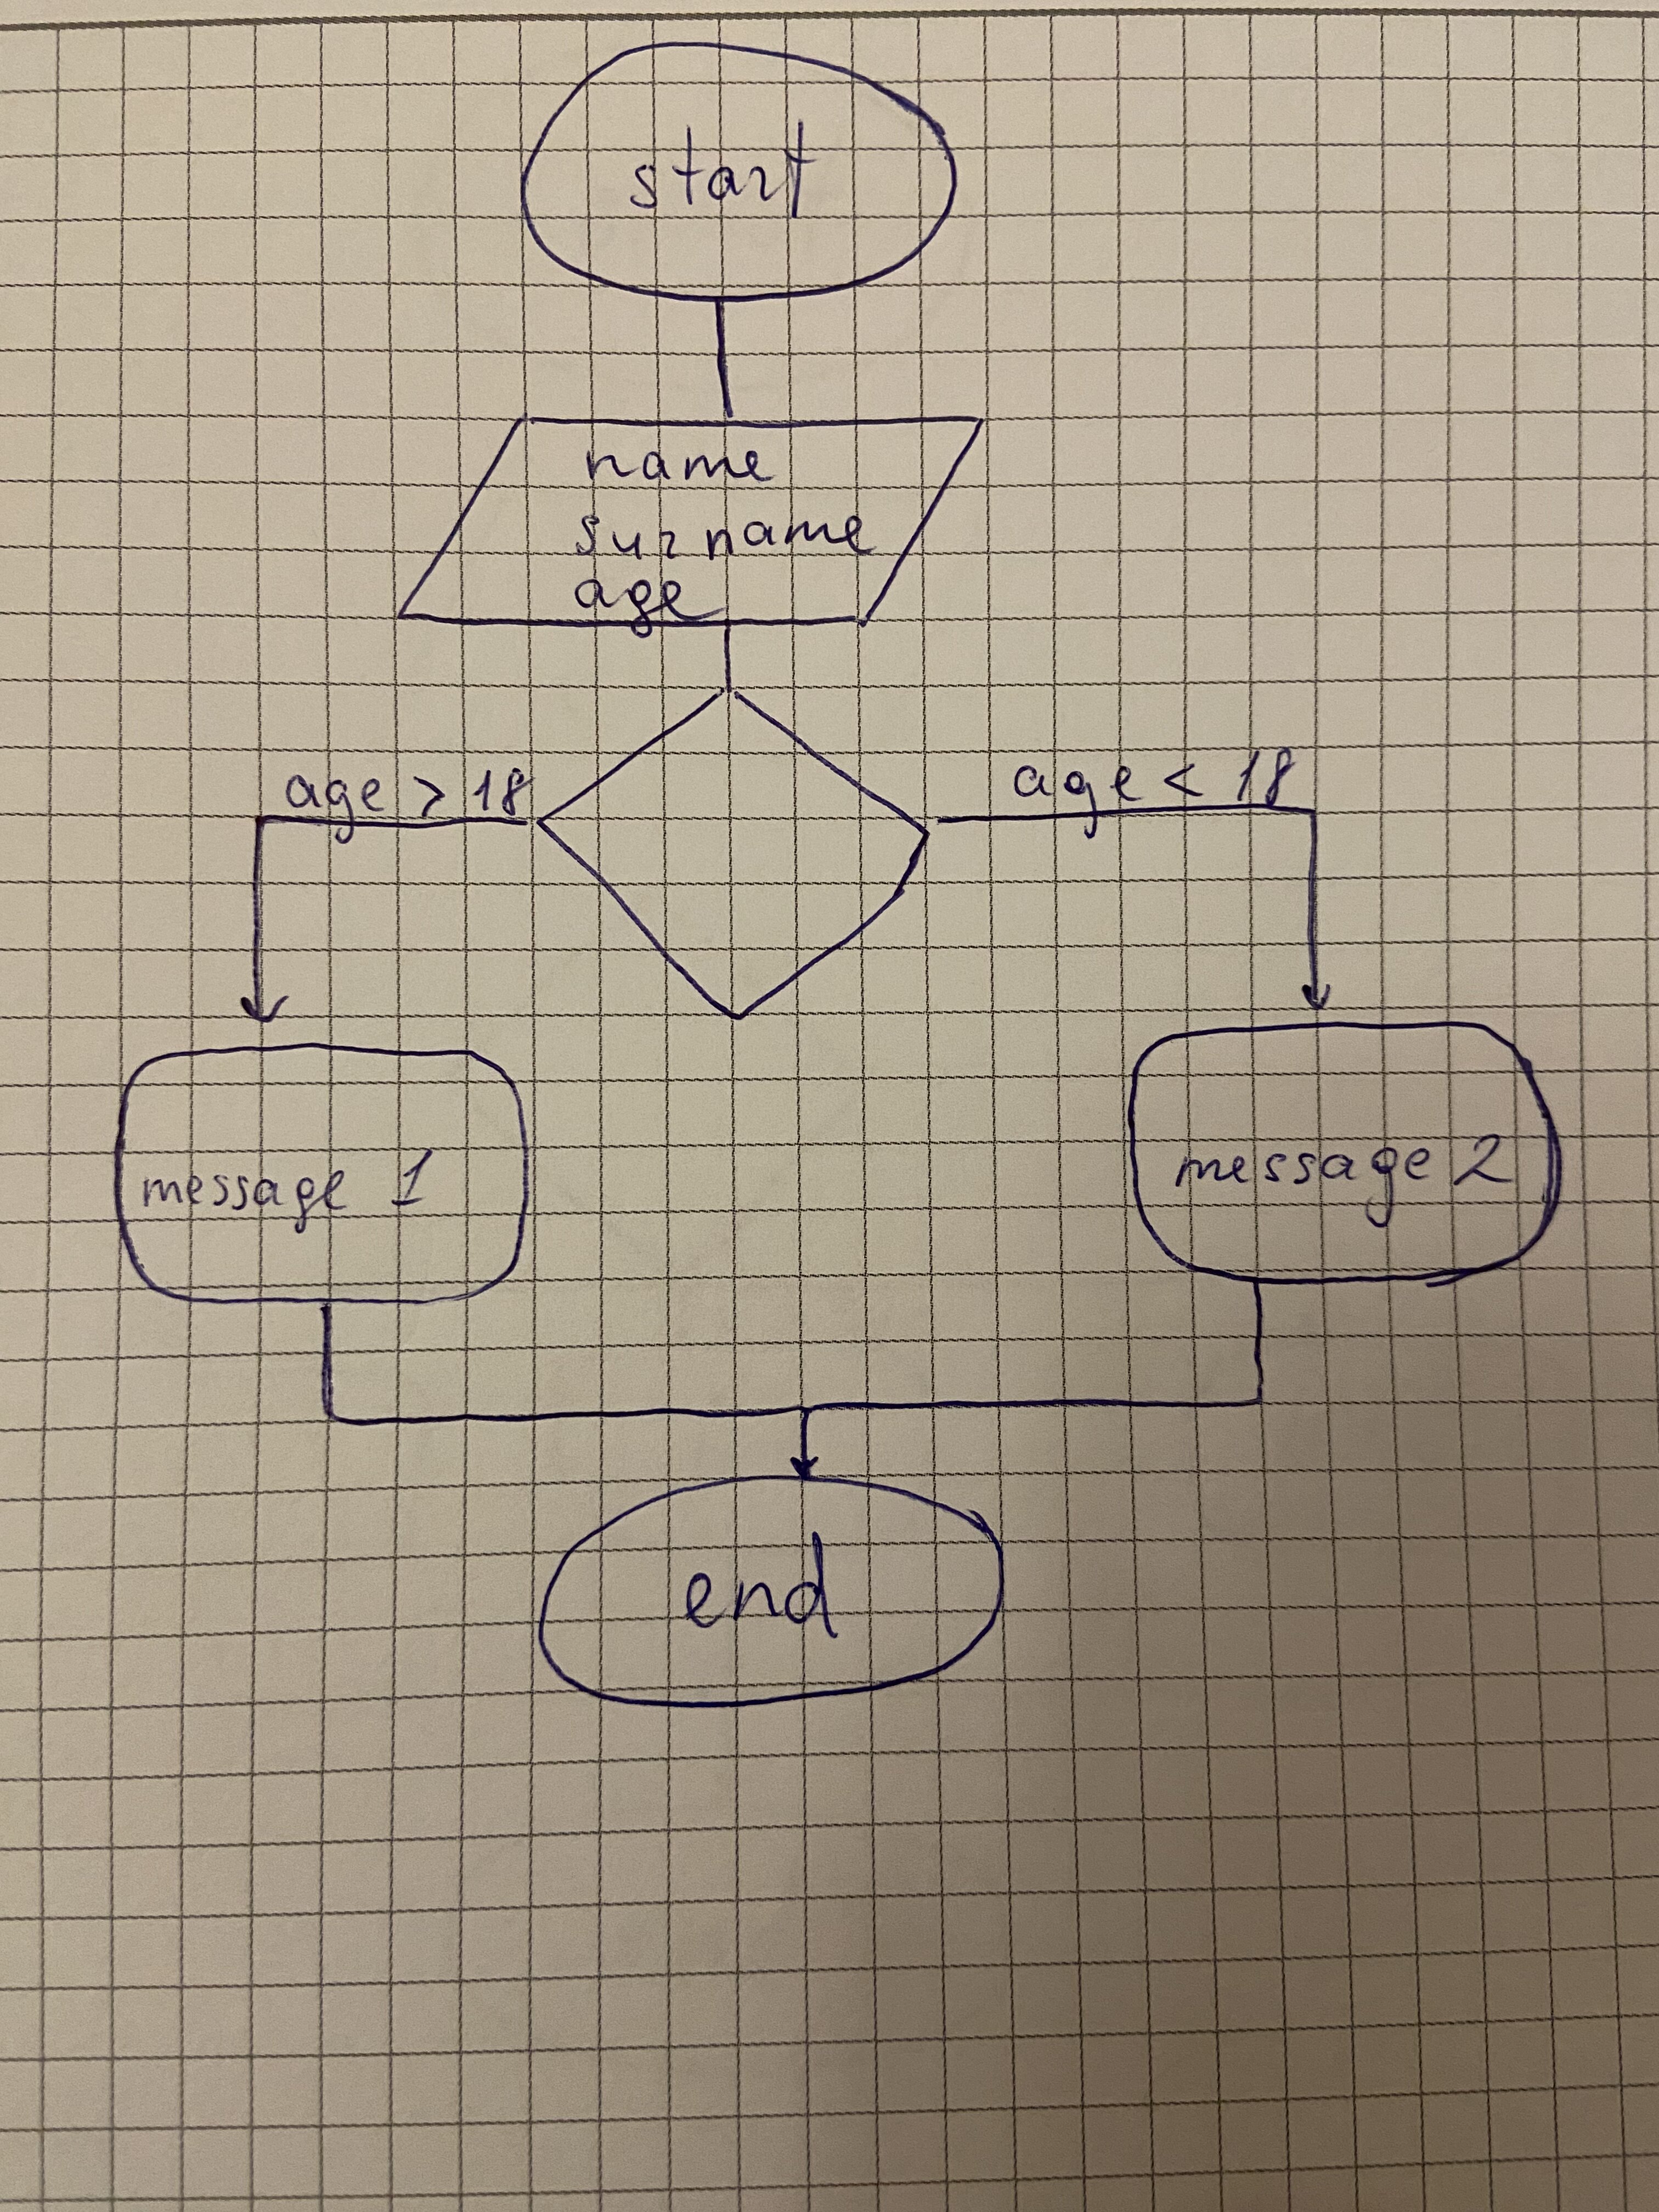 start
name
surname
age
age > 18
age < 18
message 1
message 2
end